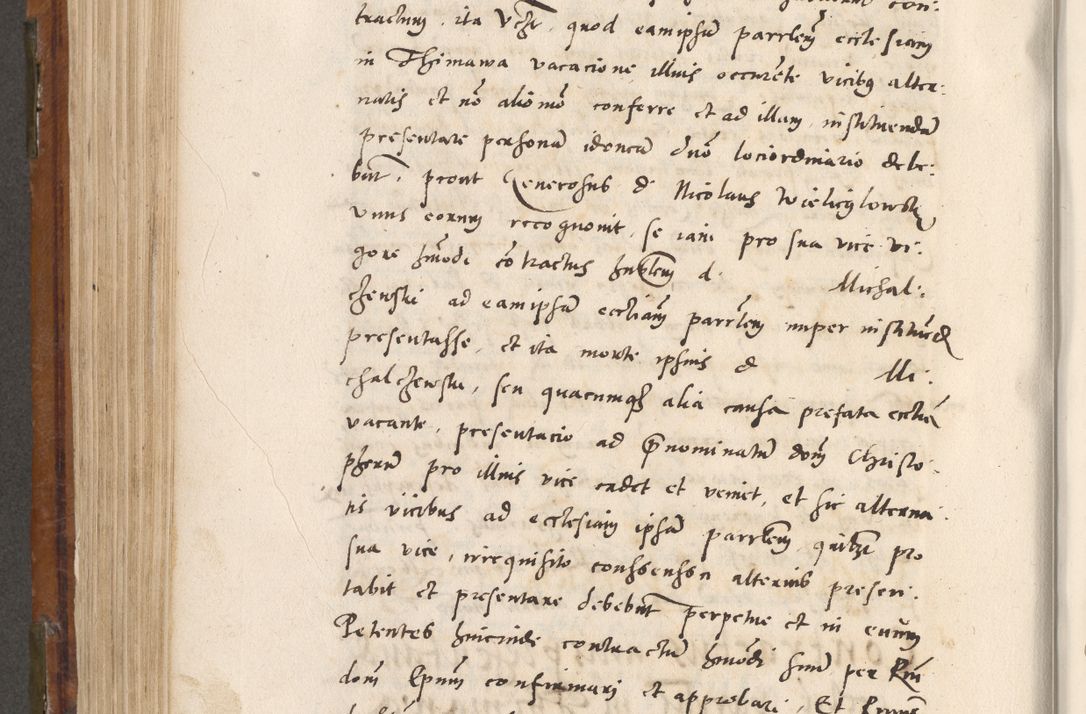 tractum, ita vz̃, quod eamipsã parrlem̃ ecclesiam
in Thimawa vacacione illius occurẽte vicibq alter:
natis et nõ aliomõ conferre et ad illam instituendũ
presentare personã idoneã dnõ lociordinario debe:
bũt, prout Generosus d Nicolaus Wielicglowsky
vnus eorum recognouit, se iam pro sua vice vi:
gore hmõdi cõtractus hnblem d. Michal:
czewski ad eamipsã eccliam̃ parrlem̃ nuper institũed
presentasse, et ita morte ipsius d Mi:
chalczewski, seu quacumq3 alia causa prefata ecclia
vacante, presentacio ad p̃nominatũ dom̃ Christo:
pherũ pro illius vice cadet et veniet, et sic alterna:
tis vicibus ad ecclesiam ipsã parrlem̃ quilz pro
sua vice, irrequisito consensu alterius presen:
tabit et presentare debebũt perpetue et in euum
Petentes huicinde contractũ hmõdi simul per Rm̃
dom̃ Epum̃ confirmari et approbari, Et